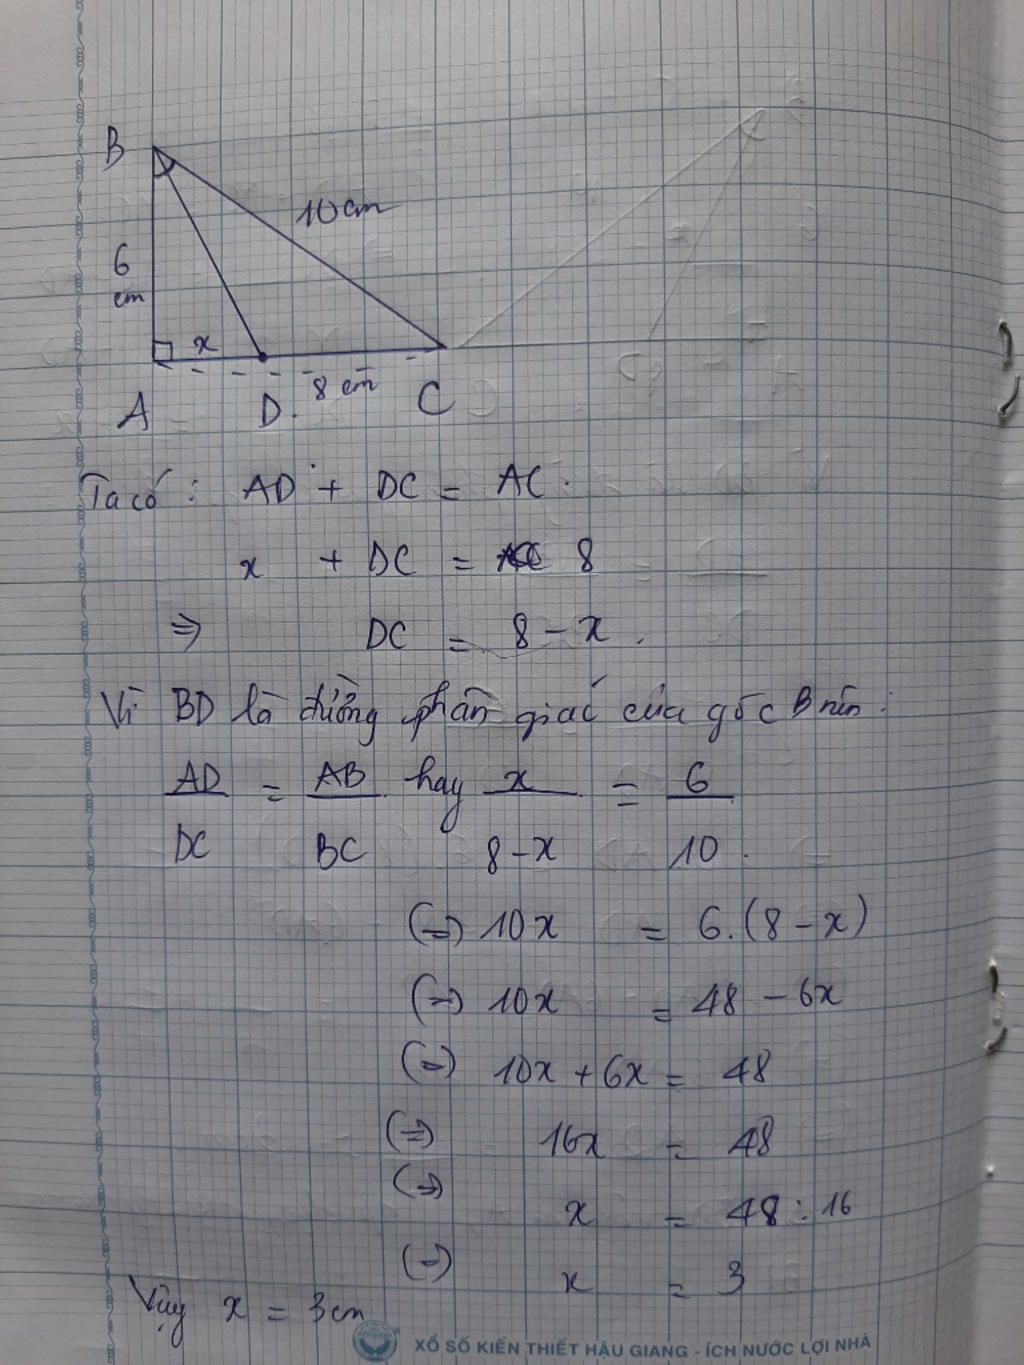 B
10 cm
6
cm
x
8 cm
A D. C
Ta có : AD + DC = AC.
x + DC = 8
⇒ DC = 8 - x.
Vì BD là đường phân giác của góc B nên :
AD = AB hay x = 6
DC BC 8-x 10.
(⇒) 10x = 6.(8 - x)
(⇒) 10x = 48 - 6x
(⇒) 10x + 6x = 48
(⇒) 16x = 48
(⇒)
x = 48 : 16
(⇒)
x = 3
Vậy x = 3cm
XỔ SỐ KIẾN THIẾT HẬU GIANG - ÍCH NƯỚC LỢI NHÀ